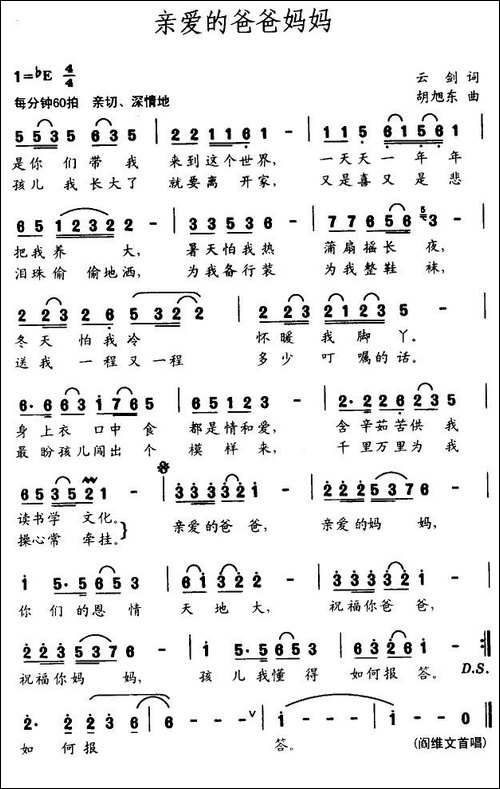 亲爱的爸爸妈妈
1=♭E 4/4
云剑 词
每分钟60拍 亲切、深情地
胡旭东 曲
5 5 3 5 6 3 5 | 2 2 1 1 6 - | 1 1 5 6 1 5 6 |
是你们带我 来到这个世界, 一天天一年年
孩儿我长大了 就要离开家, 又是喜又是悲
6 5 1 2 3 2 2 - | 3 3 5 3 6 - | 7 7 6 5 3 - |
把我养大, 暑天怕我热 蒲扇摇长夜,
泪珠偷偷地洒, 为我备行装 为我整鞋袜,
2 2 3 2 6 5 3 2 2 | 2 2 3 2 1 2 3 5 - |
冬天怕我冷 怀暖我脚丫。
送我一程又一程 多少叮嘱的话。
6· 6 6 3 1 7 6 5 | 6 5 1 2 3 - | 2· 2 2 1 6 5 |
身上衣口中食 都是情和爱, 含辛茹苦供我
最盼孩儿闯出个模样来, 千里万里为我
6 5 3 5 2 1 - | 3 3 3 3 2 1 - | 2 2 2 5 3 7 6 - |
读书学文化。 亲爱的爸爸, 亲爱的妈妈,
操心常牵挂。
1 5· 5 6 5 3 | 6 1 3 2 2 - | 3 3 3 3 2 1 - |
你们的恩情 天地大, 祝福你爸爸,
2 2 3 5 3 7 6 - | 1 5· 5 3 5 | 6 3 2 2 - :|
祝福你妈妈, 孩儿我懂得 如何报答。 D.S.
2· 2 2 3 6 | 6 - - - ∨ | 1 - - - | 1 - - 0 ‖
如何报答。 (阎维文首唱)